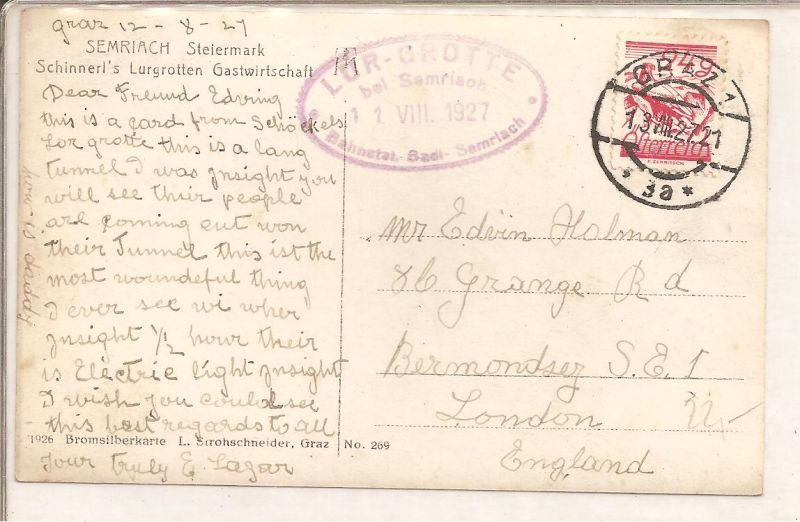 graz 12 - 8 - 27
SEMRIACH Steiermark
Schinnerl's Lurgrotten Gastwirtschaft
Dear Freund Edving
this is a card from Schöckels
Lorgrotte this is a lang
tunnel I was Jnsight you
will see their people
are Coming out won
their Tunnel this ist the
most woundeful thing
I ever see wi wher
Jnsight 1/2 hour their
is Electric light Jnsight
I wish you could see
this best regards to all
1926 Bromsilberkarte L. Strohschneider, Graz No. 269
Your truly E. Lagar
how is daddy
LUR-GROTTE
bei Semriach
11. VIII. 1927
Bahnstat. Badl-Semriach
GRAZ 1
13.VIII.27.21
* 3a *
24g
Österreich
Mr Edvin Holman
86 Grange Rd
Bermondsey S.E.1
London
England